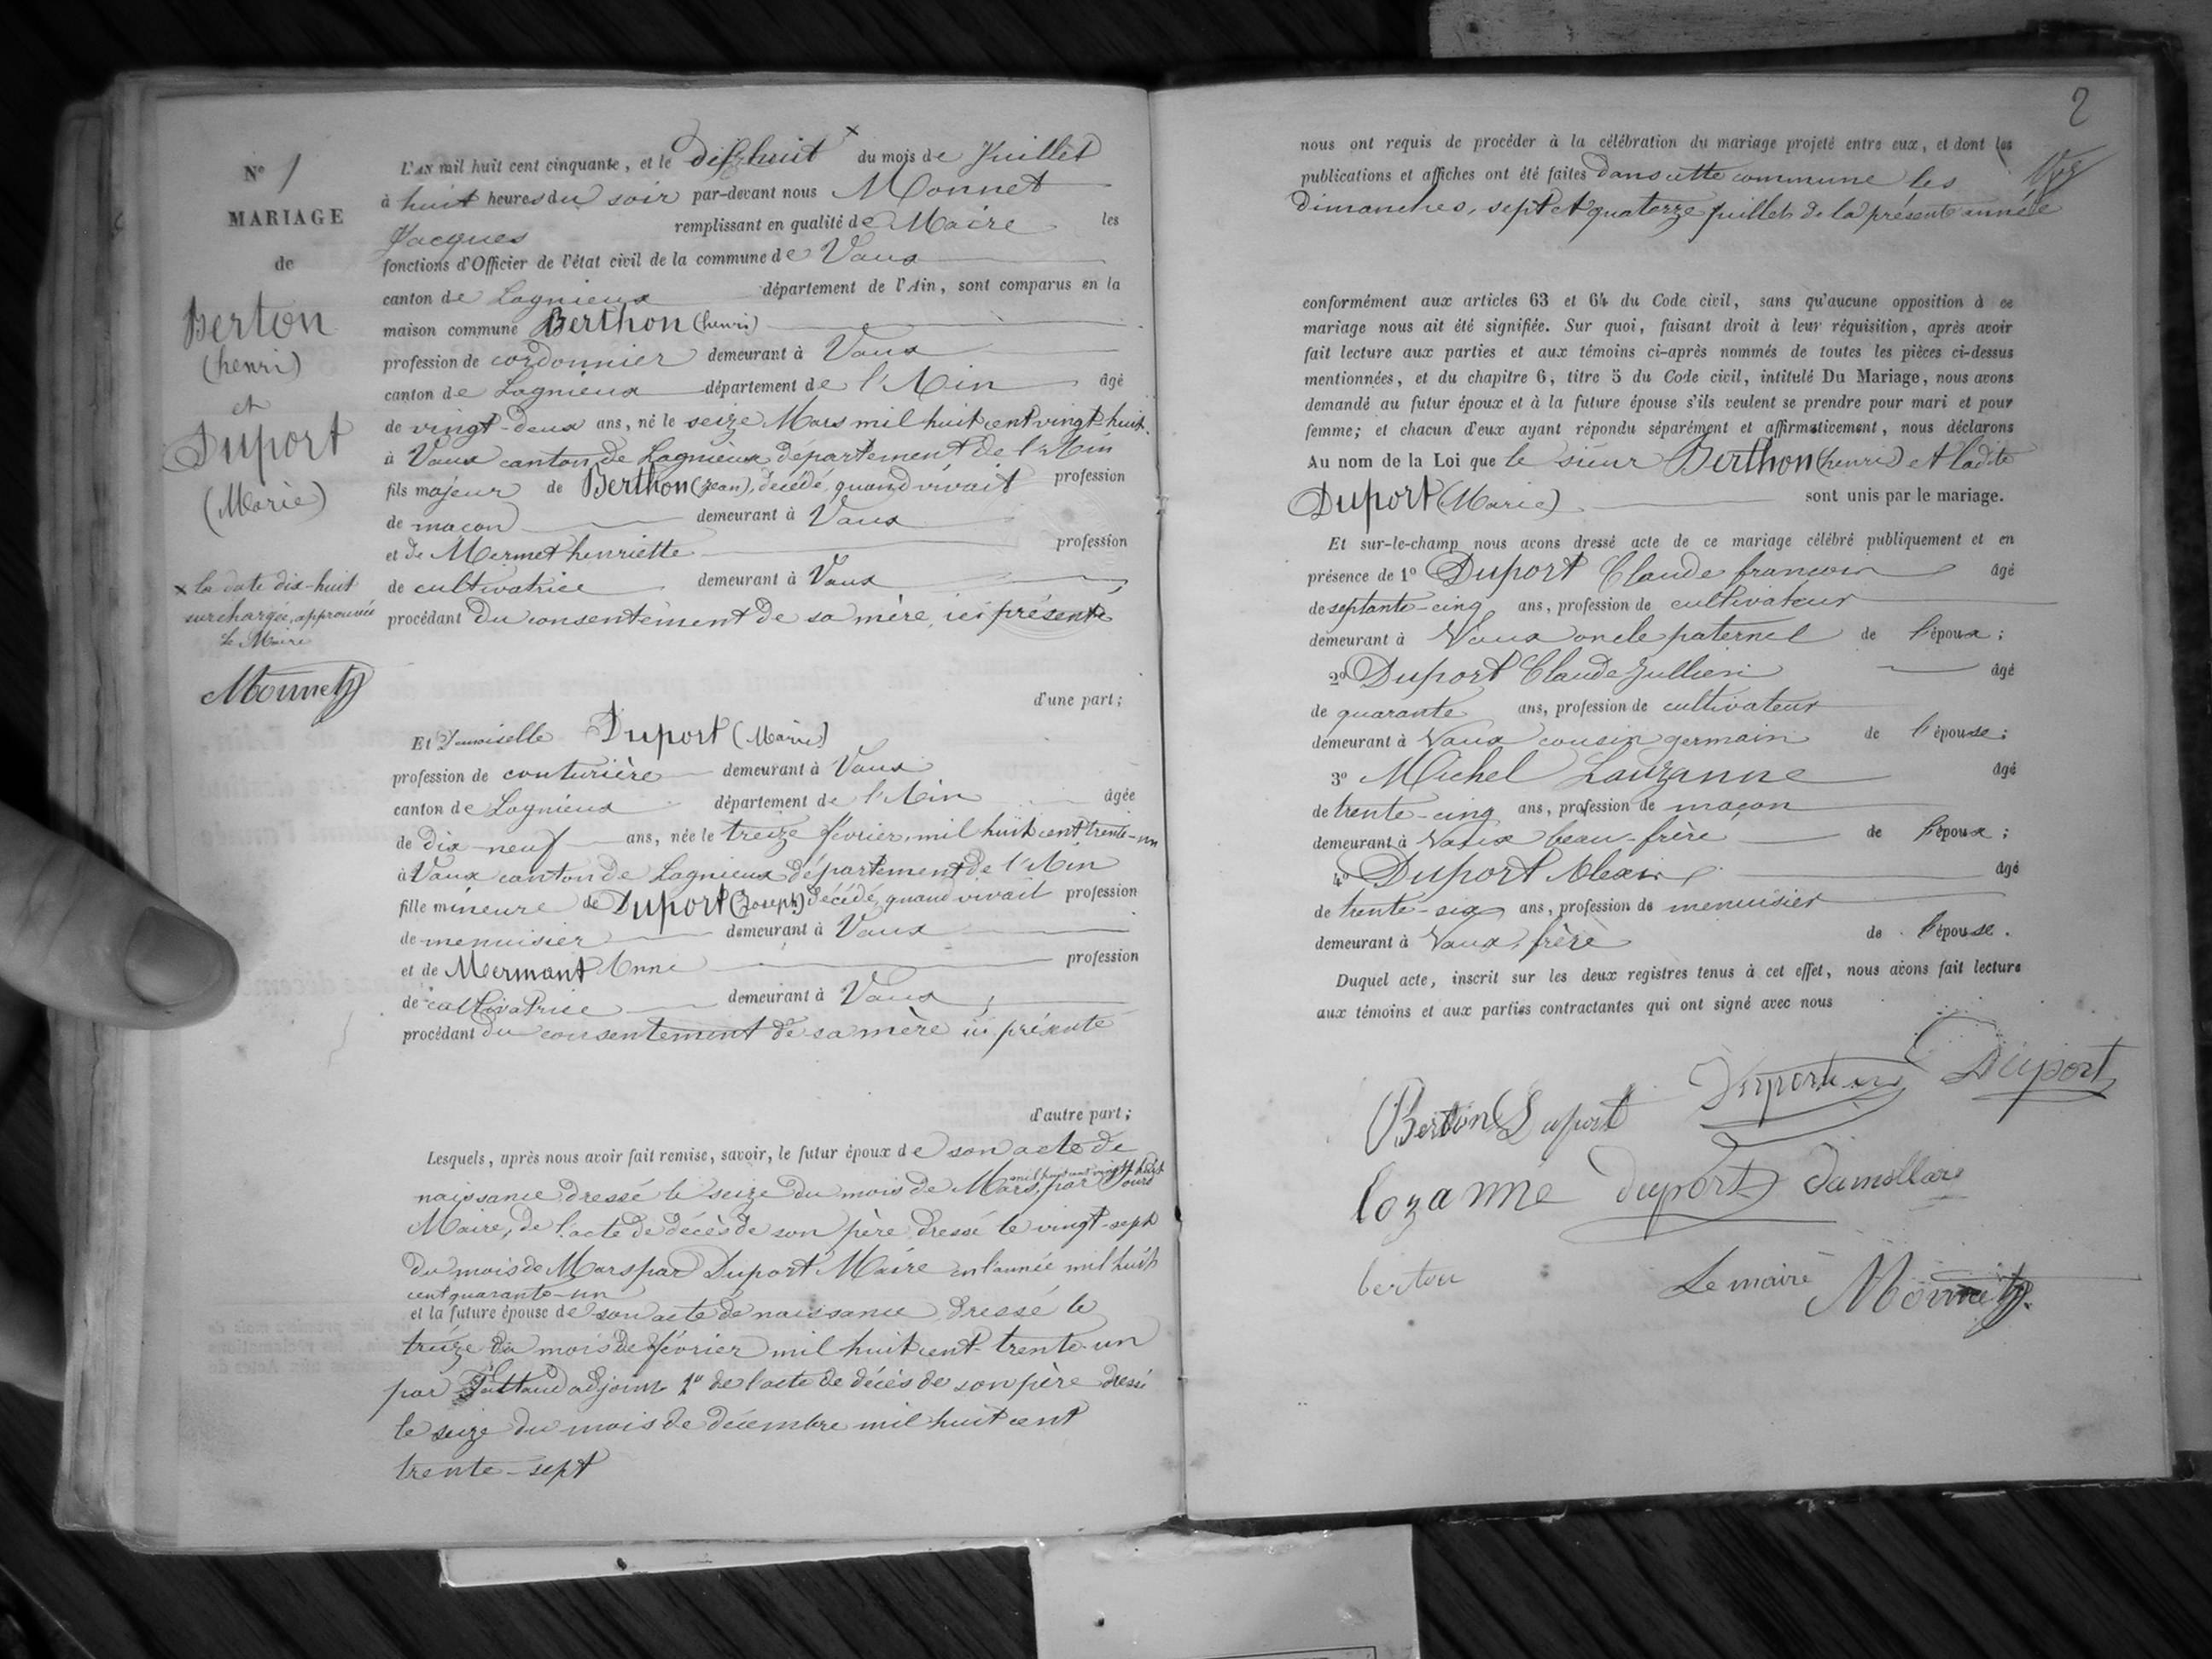 N° 1
MARIAGE
de
Berton
(henri)
et
Duport
(Marie)
x la date dix-huit
surchargée, approuvée
Le Maire
Monnet
L'AN mil huit cent cinquante, et le dix huit x du mois de Juillet
à huit heures du soir par-devant nous Monnet
Jacques remplissant en qualité de Maire les
fonctions d'Officier de l'état civil de la commune de Vaux
canton de Lagnieux département de l'Ain, sont comparus en la
maison commune Berthon (henri)
profession de cordonnier demeurant à Vaux
canton de Lagnieux département de l'Ain âgé
de vingt-deux ans, né le seize Mars mil huit cent vingt-huit
à Vaux canton de Lagnieux département de l'Ain
fils majeur de Berthon (jean), décédé, quand vivait profession
de maçon demeurant à Vaux
et de Mermet henriette profession
de cultivatrice demeurant à Vaux
procédant du consentement de sa mère, ici présente
d'une part;
Et Demoiselle Duport (Marie)
profession de couturière demeurant à Vaux
canton de Lagnieux département de l'Ain âgée
de dix-neuf ans, née le treize février, mil huit cent trente-un
à Vaux canton de Lagnieux département de l'Ain
fille mineure de Duport (Joseph) décédé, quand vivait profession
de menuisier demeurant à Vaux
et de Mermant Anne profession
de cultivatrice demeurant à Vaux
procédant du consentement de sa mère ici présente
d'autre part;
Lesquels, après nous avoir fait remise, savoir, le futur époux de son acte de
naissance dressé le seize du mois de Mars, mil huit cent vingt huit par
Maire, de l'acte de décès de son père dressé le vingt-sept
du mois de Mars par Duport Maire en l'année mil huit
cent quarante-un
et la future épouse de son acte de naissance, dressé le
treize du mois de février mil huit cent trente-un
par adjoint 2° de l'acte de décès de son père dressé
le seize du mois de décembre mil huit cent
trente-sept
2
nous ont requis de procéder à la célébration du mariage projeté entre eux, et dont les
publications et affiches ont été faites dans cette commune les
dimanches, sept et quatorze juillet de la présente année
conformément aux articles 63 et 64 du Code civil, sans qu'aucune opposition à ce
mariage nous ait été signifiée. Sur quoi, faisant droit à leur réquisition, après avoir
fait lecture aux parties et aux témoins ci-après nommés de toutes les pièces ci-dessus
mentionnées, et du chapitre 6, titre 5 du Code civil, intitulé Du Mariage, nous avons
demandé au futur époux et à la future épouse s'ils veulent se prendre pour mari et pour
femme; et chacun d'eux ayant répondu séparément et affirmativement, nous déclarons
Au nom de la Loi que le sieur Berthon (henri) et ladite
Duport (Marie) sont unis par le mariage.
Et sur-le-champ nous avons dressé acte de ce mariage célébré publiquement et en
présence de 1° Duport Claude françois âgé
de septante-cinq ans, profession de cultivateur
demeurant à Vaux oncle paternel de l'époux;
2° Duport Claude Jullien âgé
de quarante ans, profession de cultivateur
demeurant à Vaux cousin germain de l'épouse;
3° Michel Lauzanne âgé
de trente-cinq ans, profession de maçon
demeurant à Vaux beau-frère de l'époux;
4° Duport Alexis âgé
de trente-six ans, profession de menuisier
demeurant à Vaux, frère de l'épouse.
Duquel acte, inscrit sur les deux registres tenus à cet effet, nous avons fait lecture
aux témoins et aux parties contractantes qui ont signé avec nous
Berton Duport Duport
lozanne duport
berton Le maire Monnet